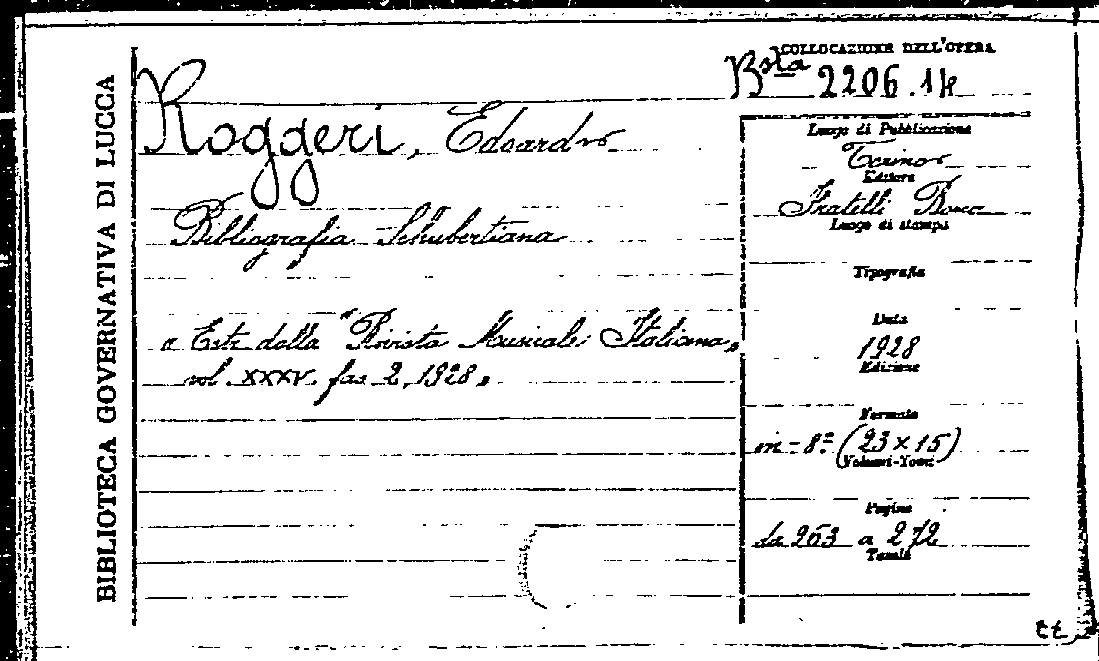 BIBLIOTECA GOVERNATIVA DI LUCCA
COLLOCAZIONE DELL'OPERA
Bsta 2206.14
Roggeri, Edoardo
Bibliografia Schubertiana
Estr. dalla "Rivista Musicale Italiana"
vol. XXXV. fas. 2, 1928"
Luogo di Pubblicazione
Torino
Editore
Fratelli Bocca
Luogo di stampa
Tipografia
Data
1928
Edizione
Formato
in-8° (23 x 15)
Volumi-Tomi
Pagine
da 263 a 272
Tavole
tt